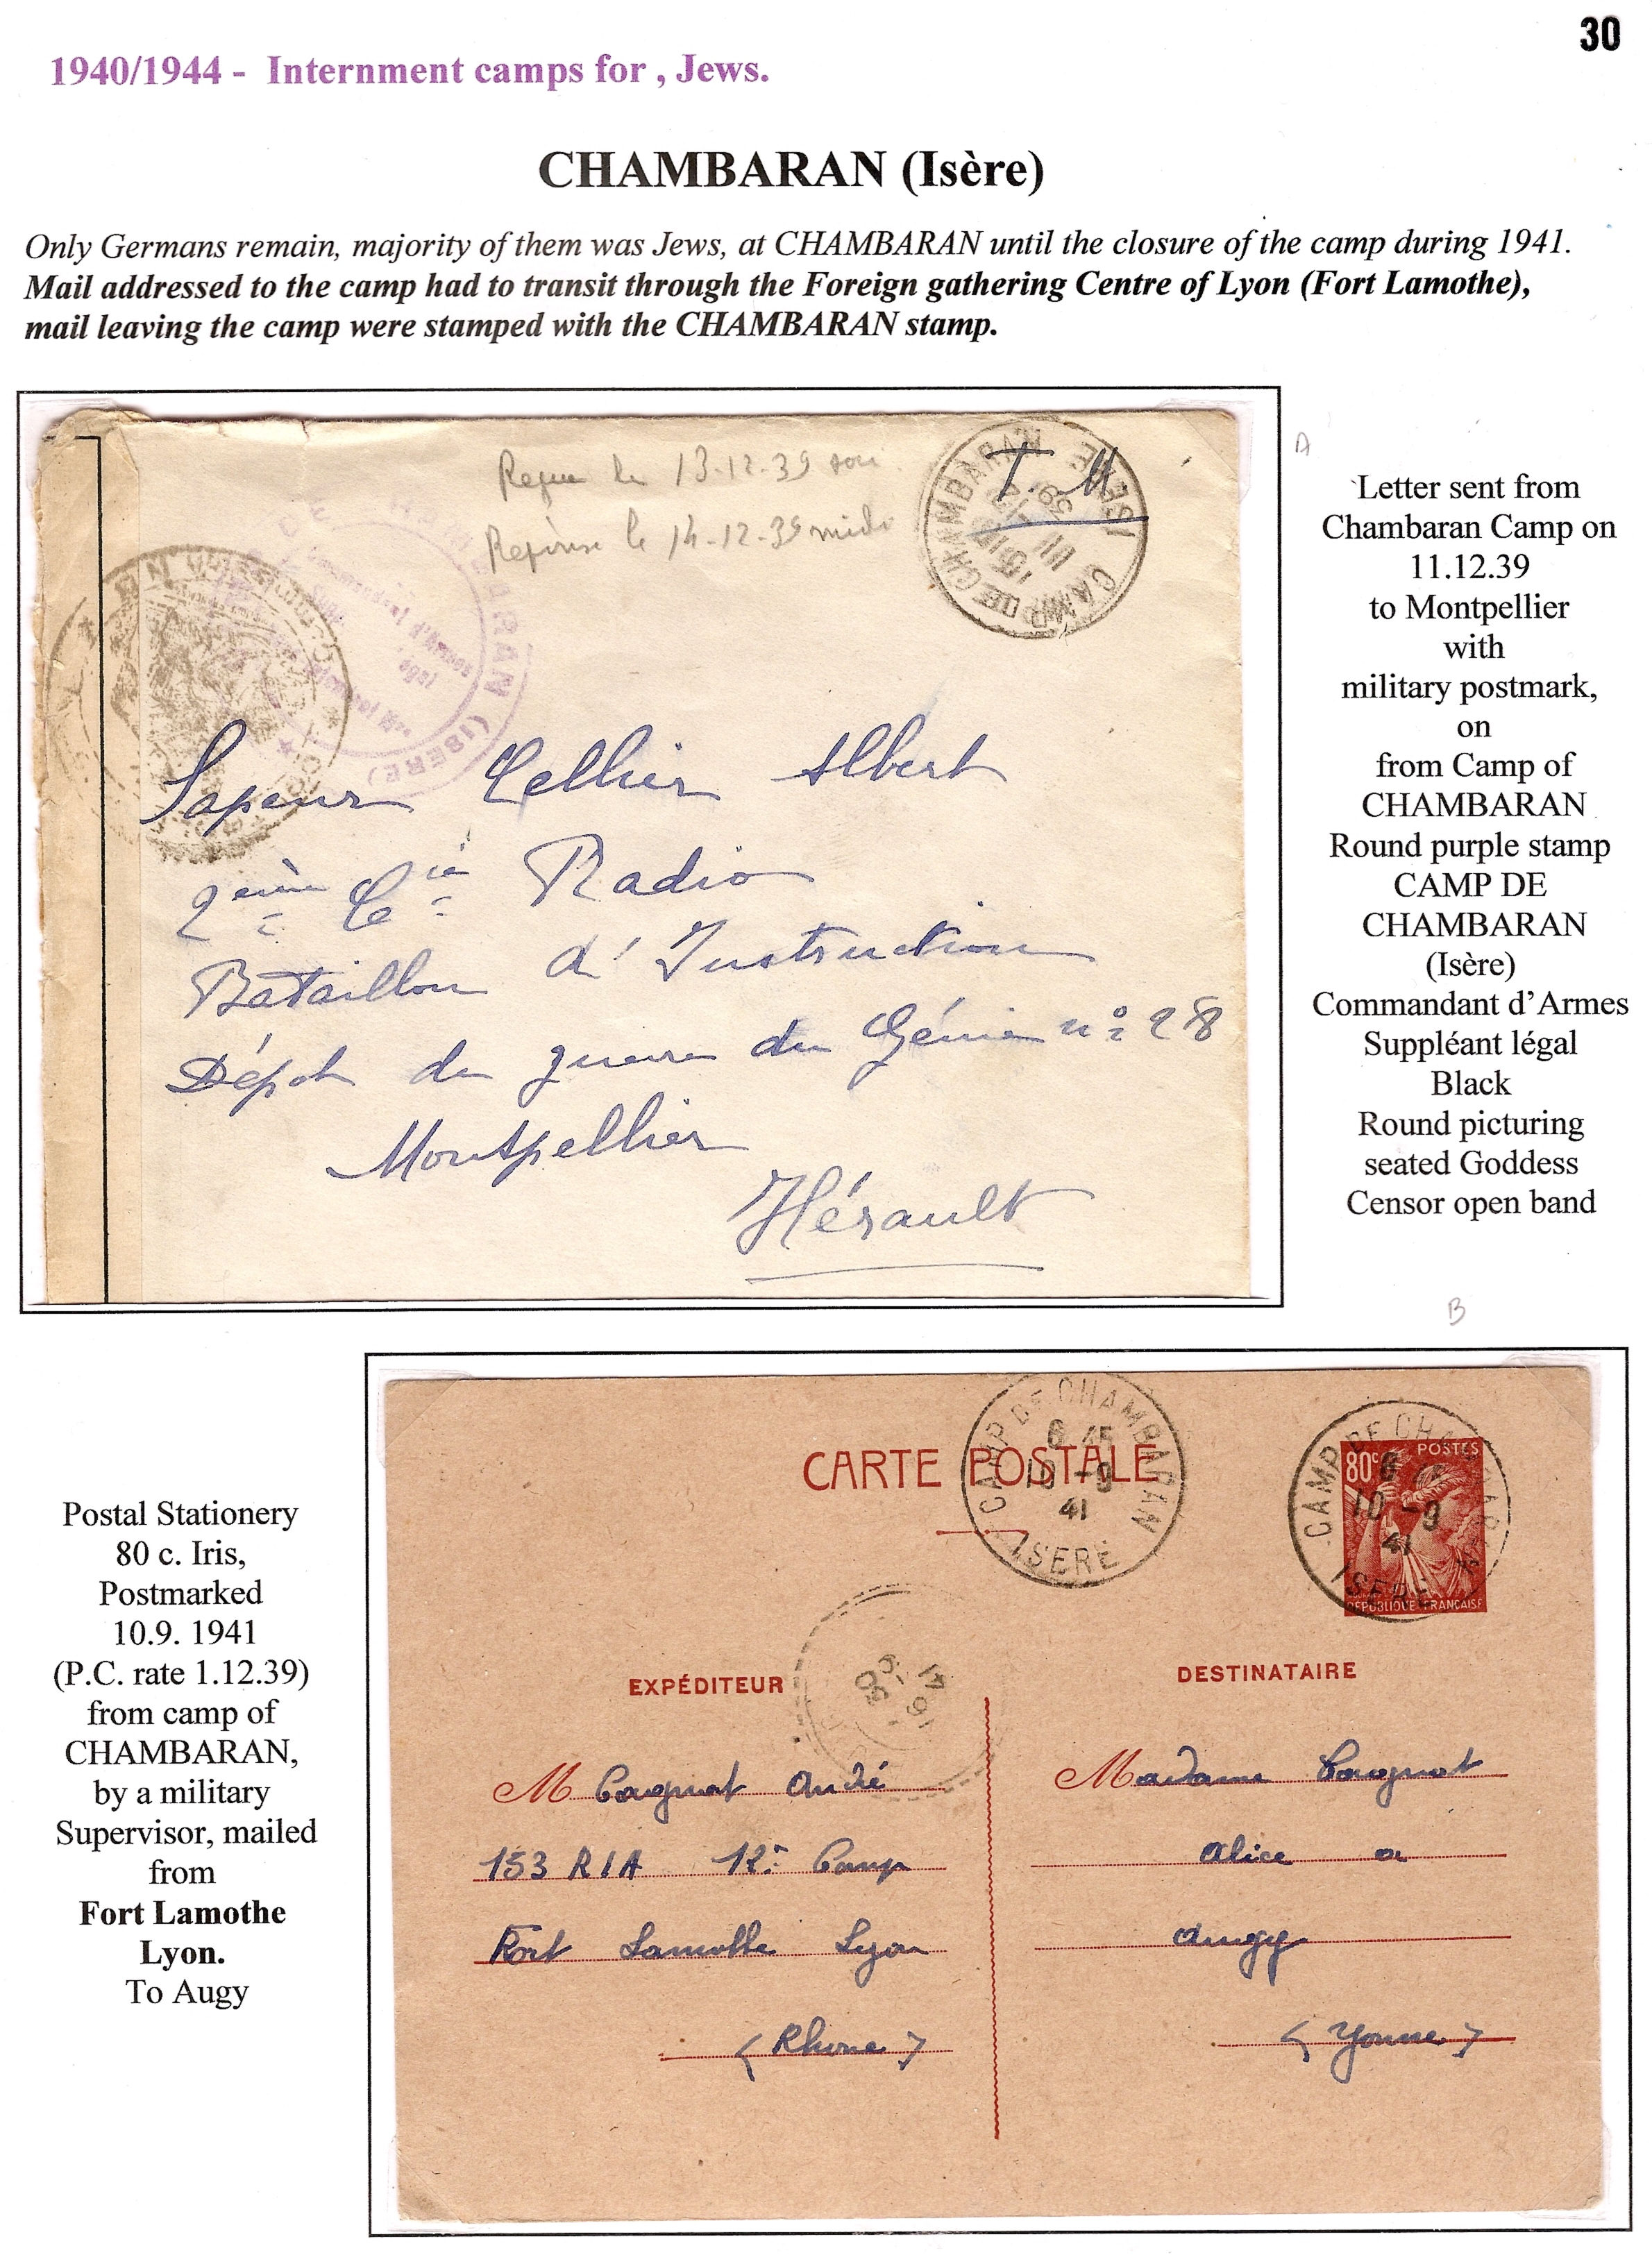 30
1940/1944 - Internment camps for , Jews.
CHAMBARAN (Isère)
Only Germans remain, majority of them was Jews, at CHAMBARAN until the closure of the camp during 1941.
Mail addressed to the camp had to transit through the Foreign gathering Centre of Lyon (Fort Lamothe),
mail leaving the camp were stamped with the CHAMBARAN stamp.
Reçue le 13-12-39 soir
Réponse le 14-12-39 midi
T. M.
CAMP DE CHAMBARAN
ISERE
39
CHAMBARAN (ISERE)
Commandant d'Armes
Sapeur Cellier Albert
2ème Cie Radio
Bataillon d'Instruction
Dépot de guerre du Génie n° 28
Montpellier
Hérault
A
Letter sent from
Chambaran Camp on
11.12.39
to Montpellier
with
military postmark,
on
from Camp of
CHAMBARAN
Round purple stamp
CAMP DE
CHAMBARAN
(Isère)
Commandant d'Armes
Suppléant légal
Black
Round picturing
seated Goddess
Censor open band
B
Postal Stationery
80 c. Iris,
Postmarked
10.9. 1941
(P.C. rate 1.12.39)
from camp of
CHAMBARAN,
by a military
Supervisor, mailed
from
Fort Lamothe
Lyon.
To Augy
CARTE POSTALE
CAMP DE CHAMBARAN
6 45
10 - 9
41
ISERE
POSTES
80c
REPUBLIQUE FRANÇAISE
CAMP DE CHAMBARAN
10 - 9
41
ISERE
EXPÉDITEUR
M Cagnat André
153 RIA 12e Comp
Fort Lamothe Lyon
(Rhone)
DESTINATAIRE
Madame Cagnat
Alice a
Augy
(Yonne)